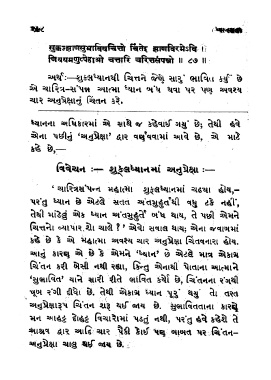 ૨૭૮ ધ્યાનશતક
सुक्कज्झाणसुभावियचित्तो चिंतेइ झाणविरमेऽवि ।
णिययमणुप्पेहाओ चत्तारि चरित्तसंपन्नो ॥ ८७ ॥
અર્થઃ—શુક્લધ્યાનથી ચિત્તને જેણે સારૂં ભાવિત કર્યું છે
એ ચારિત્ર-સંપન્ન આત્મા ધ્યાન બંધ થવા પર પણ અવશ્ય
ચાર અનુપ્રેક્ષાનું ચિંતન કરે.
ધ્યાનના અધિકારમાં એ સાથે જ કહેવાઈ ગયું છે; તેથી હવે
એના પછીનું ‘અનુપ્રેક્ષા’ દ્વાર વર્ણવવામાં આવે છે, એ માટે
કહે છે,—
વિવેચન :— શુક્લધ્યાનમાં અનુપ્રેક્ષા :—
‘ચારિત્રસંપન્ન મહાત્મા શુક્લધ્યાનમાં ચઢ્યા હોય,–
પરંતુ ધ્યાન છે એટલે સતત અંતર્મુહૂર્તથી વધુ ટકે નહીં,
તેથી માંડેલું એક ધ્યાન અંતર્મુહૂર્તે બંધ થાય, તે પછી એમને
ચિત્તનો વ્યાપાર શો ચાલે ?’ એવો સવાલ થાય; એના જવાબમાં
કહે છે કે એ મહાત્મા અવશ્ય ચાર અનુપ્રેક્ષા ચિંતવનારા હોય.
આનું કારણ એ છે કે એમને ‘ધ્યાન’ છે એટલે માત્ર એકાગ્ર
ચિંતન કરી બેસી નથી રહ્યા, કિન્તુ એનાથી પોતાના આત્માને
‘સુભાવિત’ યાને સારી રીતે ભાવિત કર્યો છે, ચિંતનના રંગથી
ખૂબ રંગી દીધો છે. તેથી એકાગ્ર ધ્યાન પૂરૂં થયું તે તરત
અનુપ્રેક્ષારૂપ ચિંતન શરૂ થઈ જાય છે. સુભાવિતતાના કારણે
મન આહટ્ટ દોહટ્ટ વિચારોમાં પડતું નથી, પરંતુ હવે કહેશે તે
આશ્રવ દ્વાર આદિ ચાર પૈકી કોઈ પણ બાબત પર ચિંતન-
અનુપ્રેક્ષા ચાલુ થઈ જાય છે.